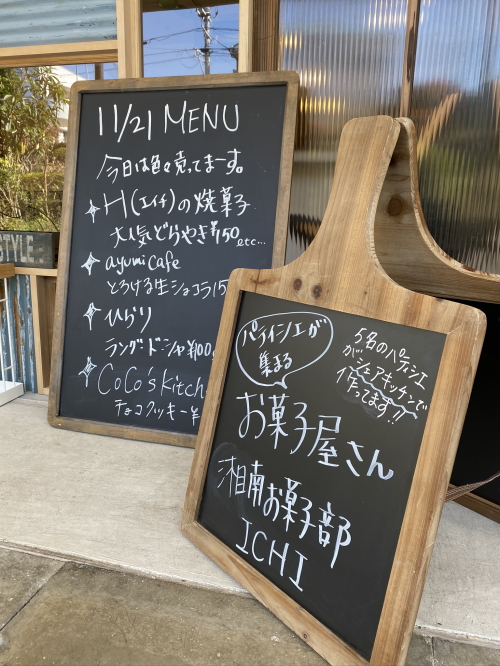 11/21 MENU
今日は色々売ってまーす。
H(エイチ)の焼菓子
大人気どらやき¥150
etc...
ayumi cafe
とろける生ショコラ15
ひらり
ラングドシャ¥100
CoCo's kitch
チョコクッキー¥
STYLE.
パティシエが
集まる
5名のパティシエ
がシェアキッチンで
作ってます!!
お菓子屋さん
湘南お菓子部
ICHI